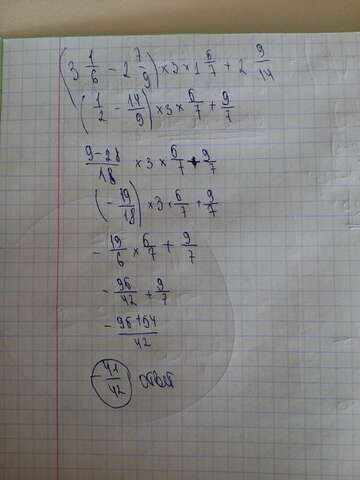 (3 1/6 - 2 7/9) × 3 × 1 6/7 + 2 9/14
(1/2 - 14/9) × 3 × 6/7 + 9/7
9-28/18 × 3 × 6/7 + 9/7
(- 19/18) × 3 × 6/7 + 9/7
- 19/6 × 6/7 + 9/7
- 96/42 + 9/7
- 96+54/42
- 41/42 ответ